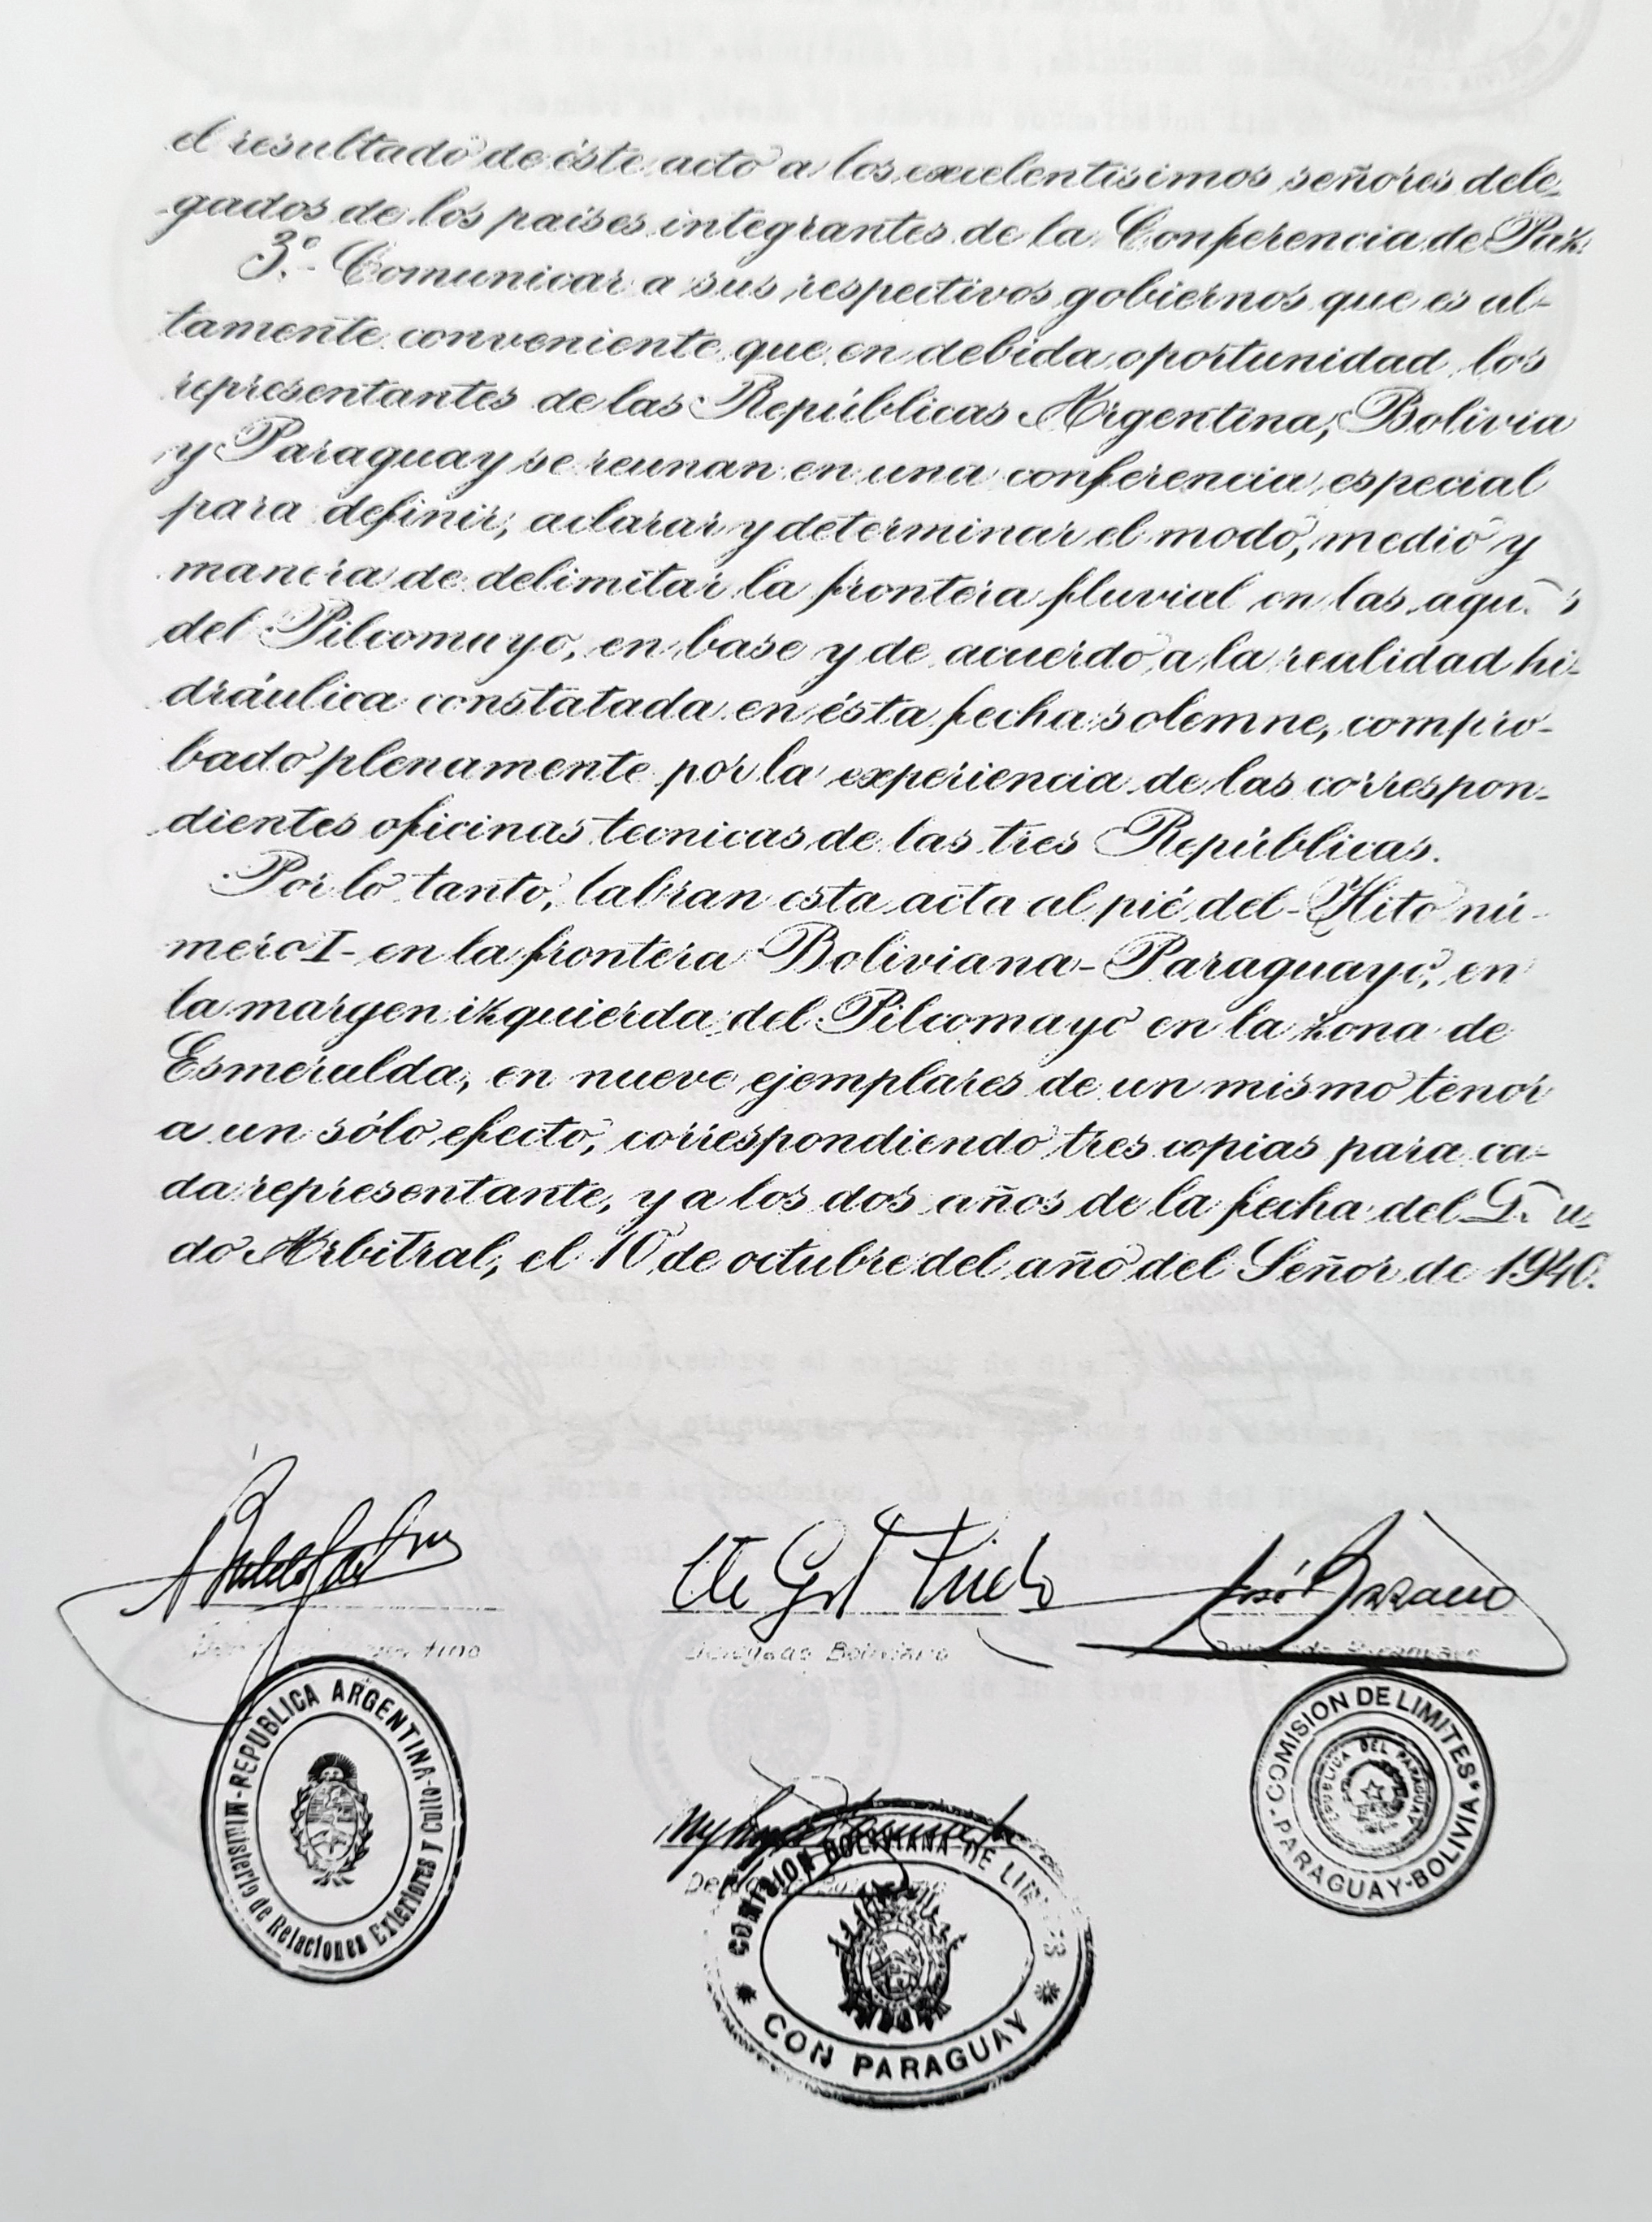 el resultado de éste acto a los excelentísimos señores dele-
gados de los países integrantes de la Conferencia de Paz.
3º.- Comunicar a sus respectivos gobiernos que es al-
tamente conveniente que en debida oportunidad los
representantes de las Repúblicas Argentina, Bolivia
y Paraguay se reunan en una conferencia especial
para definir, aclarar y determinar el modo, medio y
manera de delimitar la frontera fluvial en las aguas
del Pilcomayo, en base y de acuerdo a la realidad hi-
dráulica constatada en ésta fecha solemne, compro-
bado plenamente por la experiencia de las correspon-
dientes oficinas tecnicas de las tres Repúblicas.
Por lo tanto, labran esta acta al pié del - Hito nú-
mero I - en la frontera Boliviana - Paraguayo, en
la margen izquierda del Pilcomayo en la zona de
Esmeralda, en nueve ejemplares de un mismo tenor
a un sólo efecto, correspondiendo tres copias para ca-
da representante, y a los dos años de la fecha del Lau-
do Arbitral, el 10 de octubre del año del Señor de 1940.
José Bozzano
Delegado Boliviano
REPUBLICA ARGENTINA - Ministerio de Relaciones Exteriores y Culto
COMISION DE LIMITES
REPUBLICA DEL PARAGUAY
PARAGUAY-BOLIVIA
COMISION BOLIVIANA DE LIMITES
CON PARAGUAY